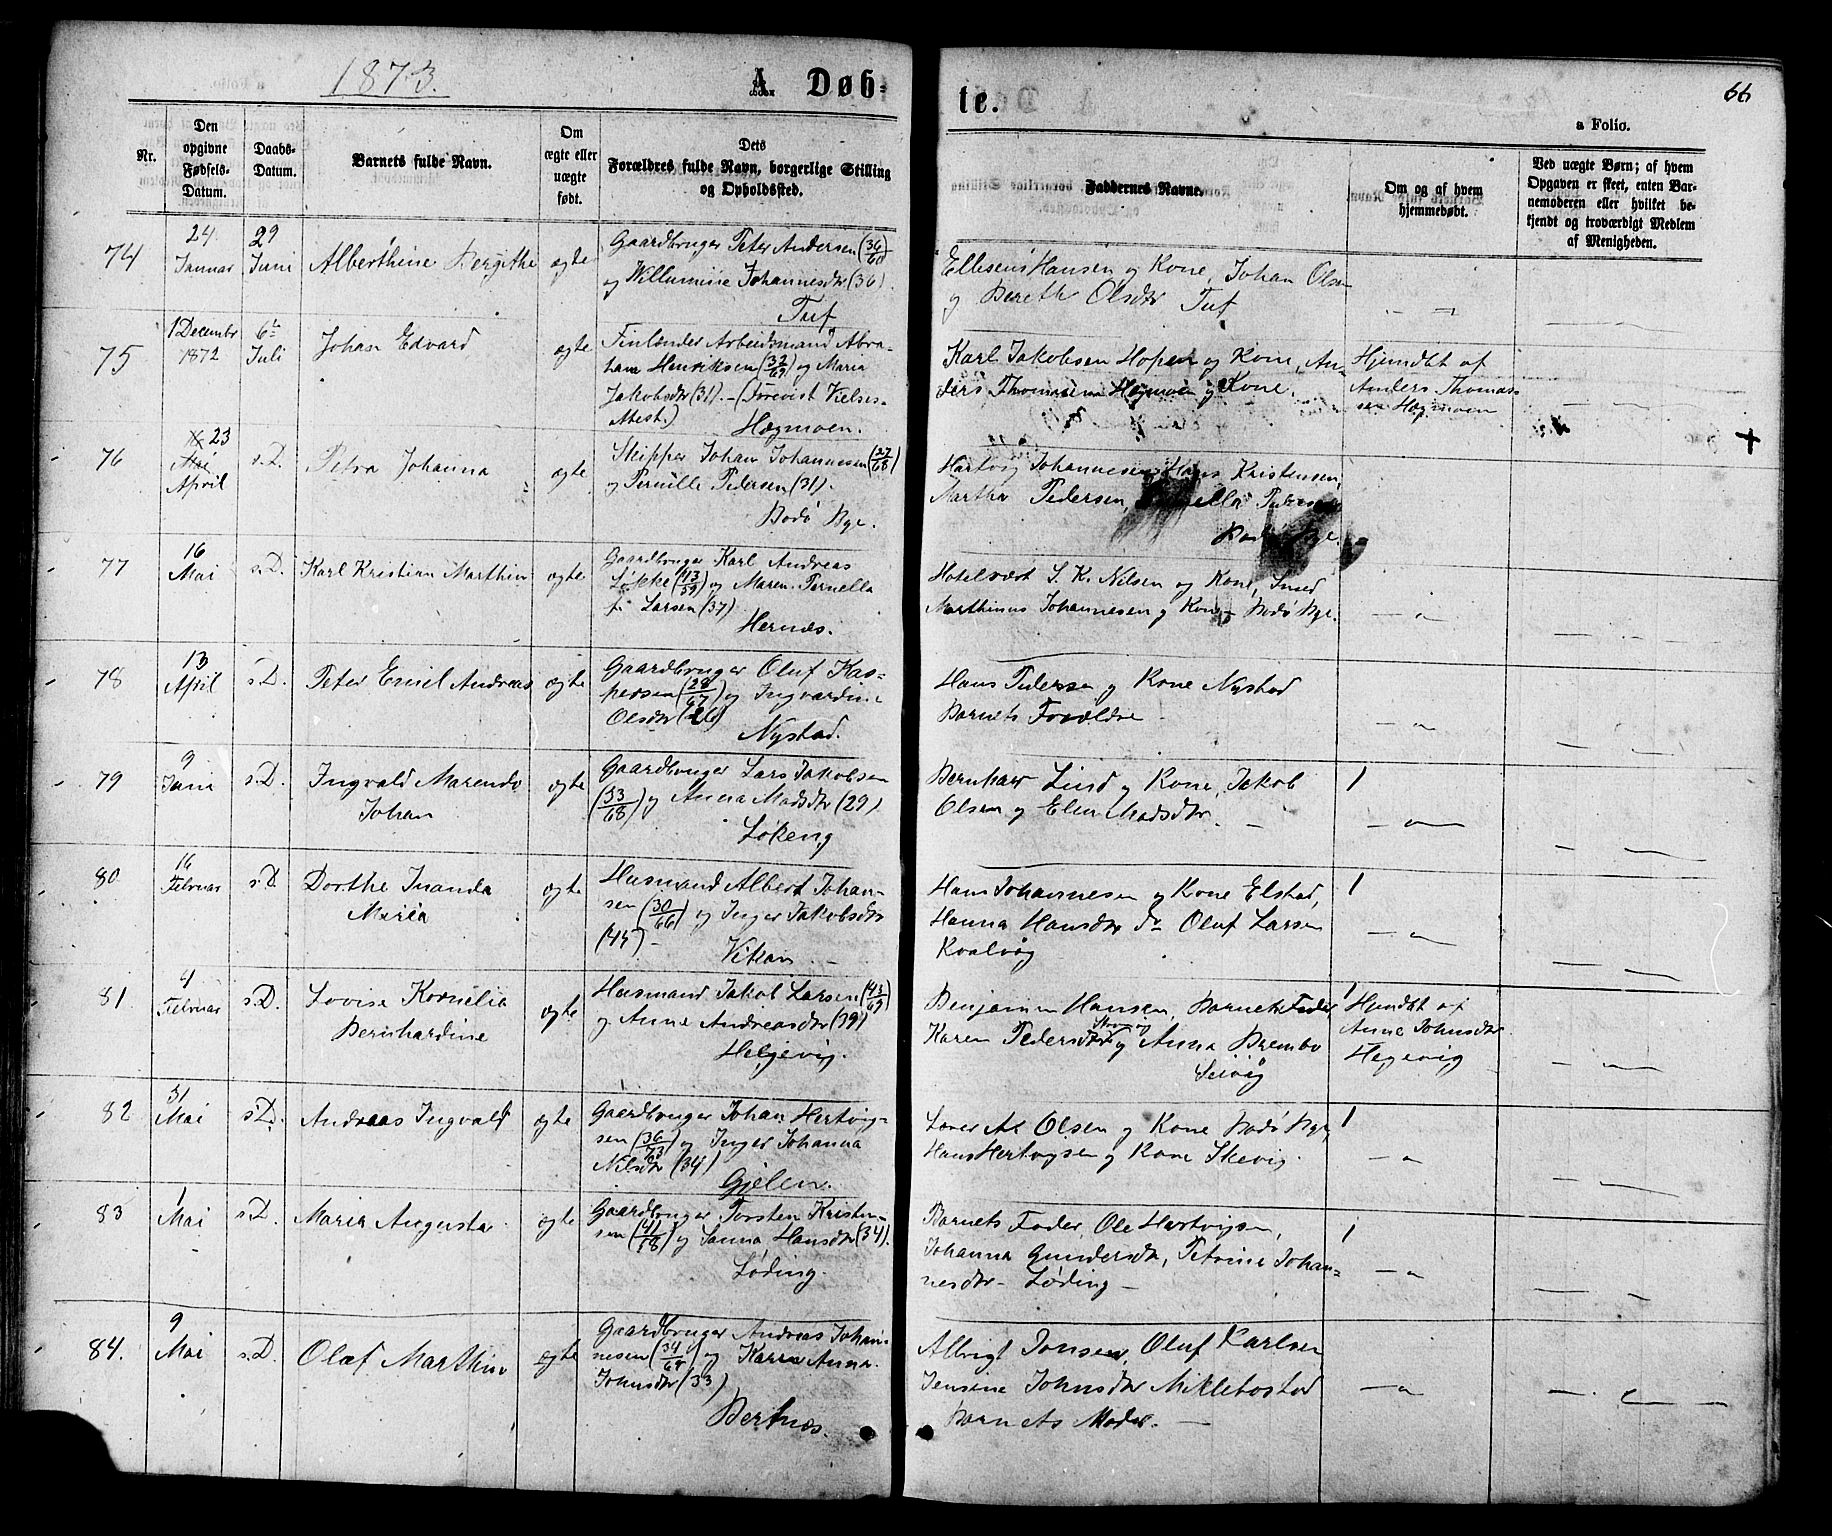 1873.
A Døb-
te.
66
a Folio.
Nr.
Den
opgivne
Fødsels-
Datum.
Daabs-
Datum.
Barnets fulde Navn.
Om
ægte eller
uægte
født.
Dets
Forældres fulde Navn, borgerlige Stilling
og Opholdssted.
Faddernes Navne.
Om og af hvem
hjemmedøbt.
Ved uægte Børn; af hvem
Opgaven er skeet, enten Bar-
nemoderen eller hvilket be-
kjendt og troværdigt Medlem
af Menigheden.
74
24
Januar
29
Juni
Alberthine Bergitha
ægte
Gaardbruger Peter Andersen (36/60)
og Willumine Johannesdtr (36).
Tuf
Ellisens Hansen og Kone, Johan Olsen
og Bereth Olsdtr Tuf
75
1 Decembr
1872
6te
Juli
Johan Edvard
ægte
Finlænder Arbeidsmand Abra-
ham Henriksen (32/69) og Maria
Jakobsdtr (31). - (Forevist Vielses-
Attest.)
Hægmoen.
Karl Jakobsen Hopen og Kone, An-
ders Thomassen Hægmoen og Kone.
Hjemdbt af
Anders Thomas-
sen Hægmoen
76
23
Mai
April
s.D.
Petra Johanna
ægte
Skipper Johan Johannesen (27/68)
og Pernille Pedersen (31).
Bodø Bye.
Hartvig Johannesen, Hans Kristensen,
Martha Pedersen, Pedersen
Bodø Bye.
77
16
Mai
s.D.
Karl Kristian Marthin
ægte
Gaardbruger Karl Andreas
Løkke (43/59) og Maren Pernella
f. Larsen (37).
Hernæs.
Hotelvært S. K. Nilsen og Kone, Smed
Marthinus Johannesen og Kone - Bodø Bye.
78
13
April
s.D.
Peter Emil Andreas
ægte
Gaardbruger Oluf Kas-
persen (28/67) og Ingvardine
Olsdtr (26)
Nystad.
Hans Pedersen og Kone Nystad
Barnets Forældre -
79
9
Juni
s.D.
Ingvald Marendo
Johan
ægte
Gaardbruger Lars Jakobsen
(33/68) og Anna Madsdtr (29).
Løkeng
Bernhard Lind og Kone, Jakob
Olsen og Elen Madsdtr. -
1
80
16
Februar
s.D.
Dorthe Inanda
Maria
ægte
Husmand Albert Johan-
sen (30/66) og Inger Jakobsdtr
(45) -
Vikan
Hans Johannesen og Kone Elstad,
Hanna Hansdtr do Oluf Larsen
Kvalvåg
1
81
4
Februar
s.D.
Lovise Kornelia
Bernhardine
ægte
Husmand Jakob Larsen (43/69)
og Anne Andreasdtr (39)
Heljevig.
Benjamin Hansen, Barnets Fader
Karen Pedersdtr og Anna Brembo
Seivåg
1
Hjemdbt af
Anne Johnsdtr
Hegevig
82
31
Mai
s.D.
Andreas Ingvald
ægte
Gaardbruger Johan Hertvig-
sen (36/73) og Inger Johanna
Nilsdtr (34)
Gjelen.
Lærer A. Olsen og Kone Bodø Bye,
Hans Hertvigsen og Kone Skevig.
1
83
1
Mai
s.D.
Maria Augusta
ægte
Gaardbruger Torsten Kristen-
sen (41/58) og Janna Hansdtr (34).
Løding
Barnets Fader, Ole Hartvigsen,
Johanna Gundersdtr, Petrine Johan-
nesdtr - Løding -
1
84.
9
Mai
s.D.
Olaf Marthin
ægte
Gaardbruger Andreas Johan-
nesen (34/64) og Karen Anna
Johnsdtr (33)
Bertnes.
Albrigt Jonsen, Oluf Karlsen
Jensine Johnsdtr Miklebostad
Barnets Moder. -